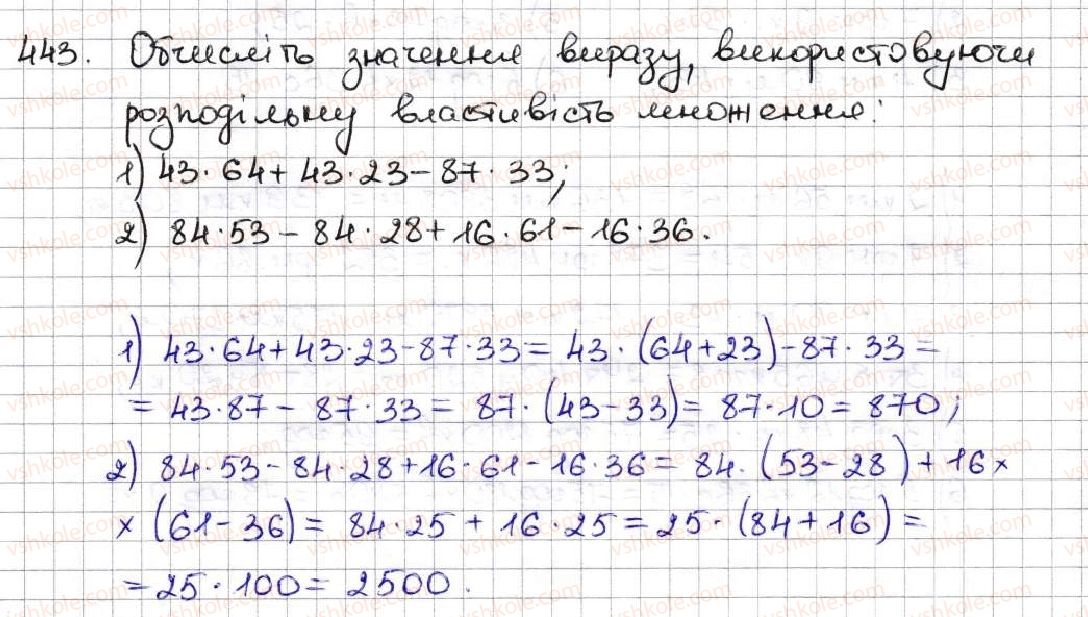 443. Обчисліть значення виразу, використовуючи
розподільну властивість множення:
1) 43·64+43·23-87·33;
2) 84·53-84·28+16·61-16·36.
1) 43·64+43·23-87·33=43·(64+23)-87·33=
=43·87-87·33=87·(43-33)=87·10=870;
2) 84·53-84·28+16·61-16·36=84·(53-28)+16×
×(61-36)=84·25+16·25=25·(84+16)=
=25·100=2500.